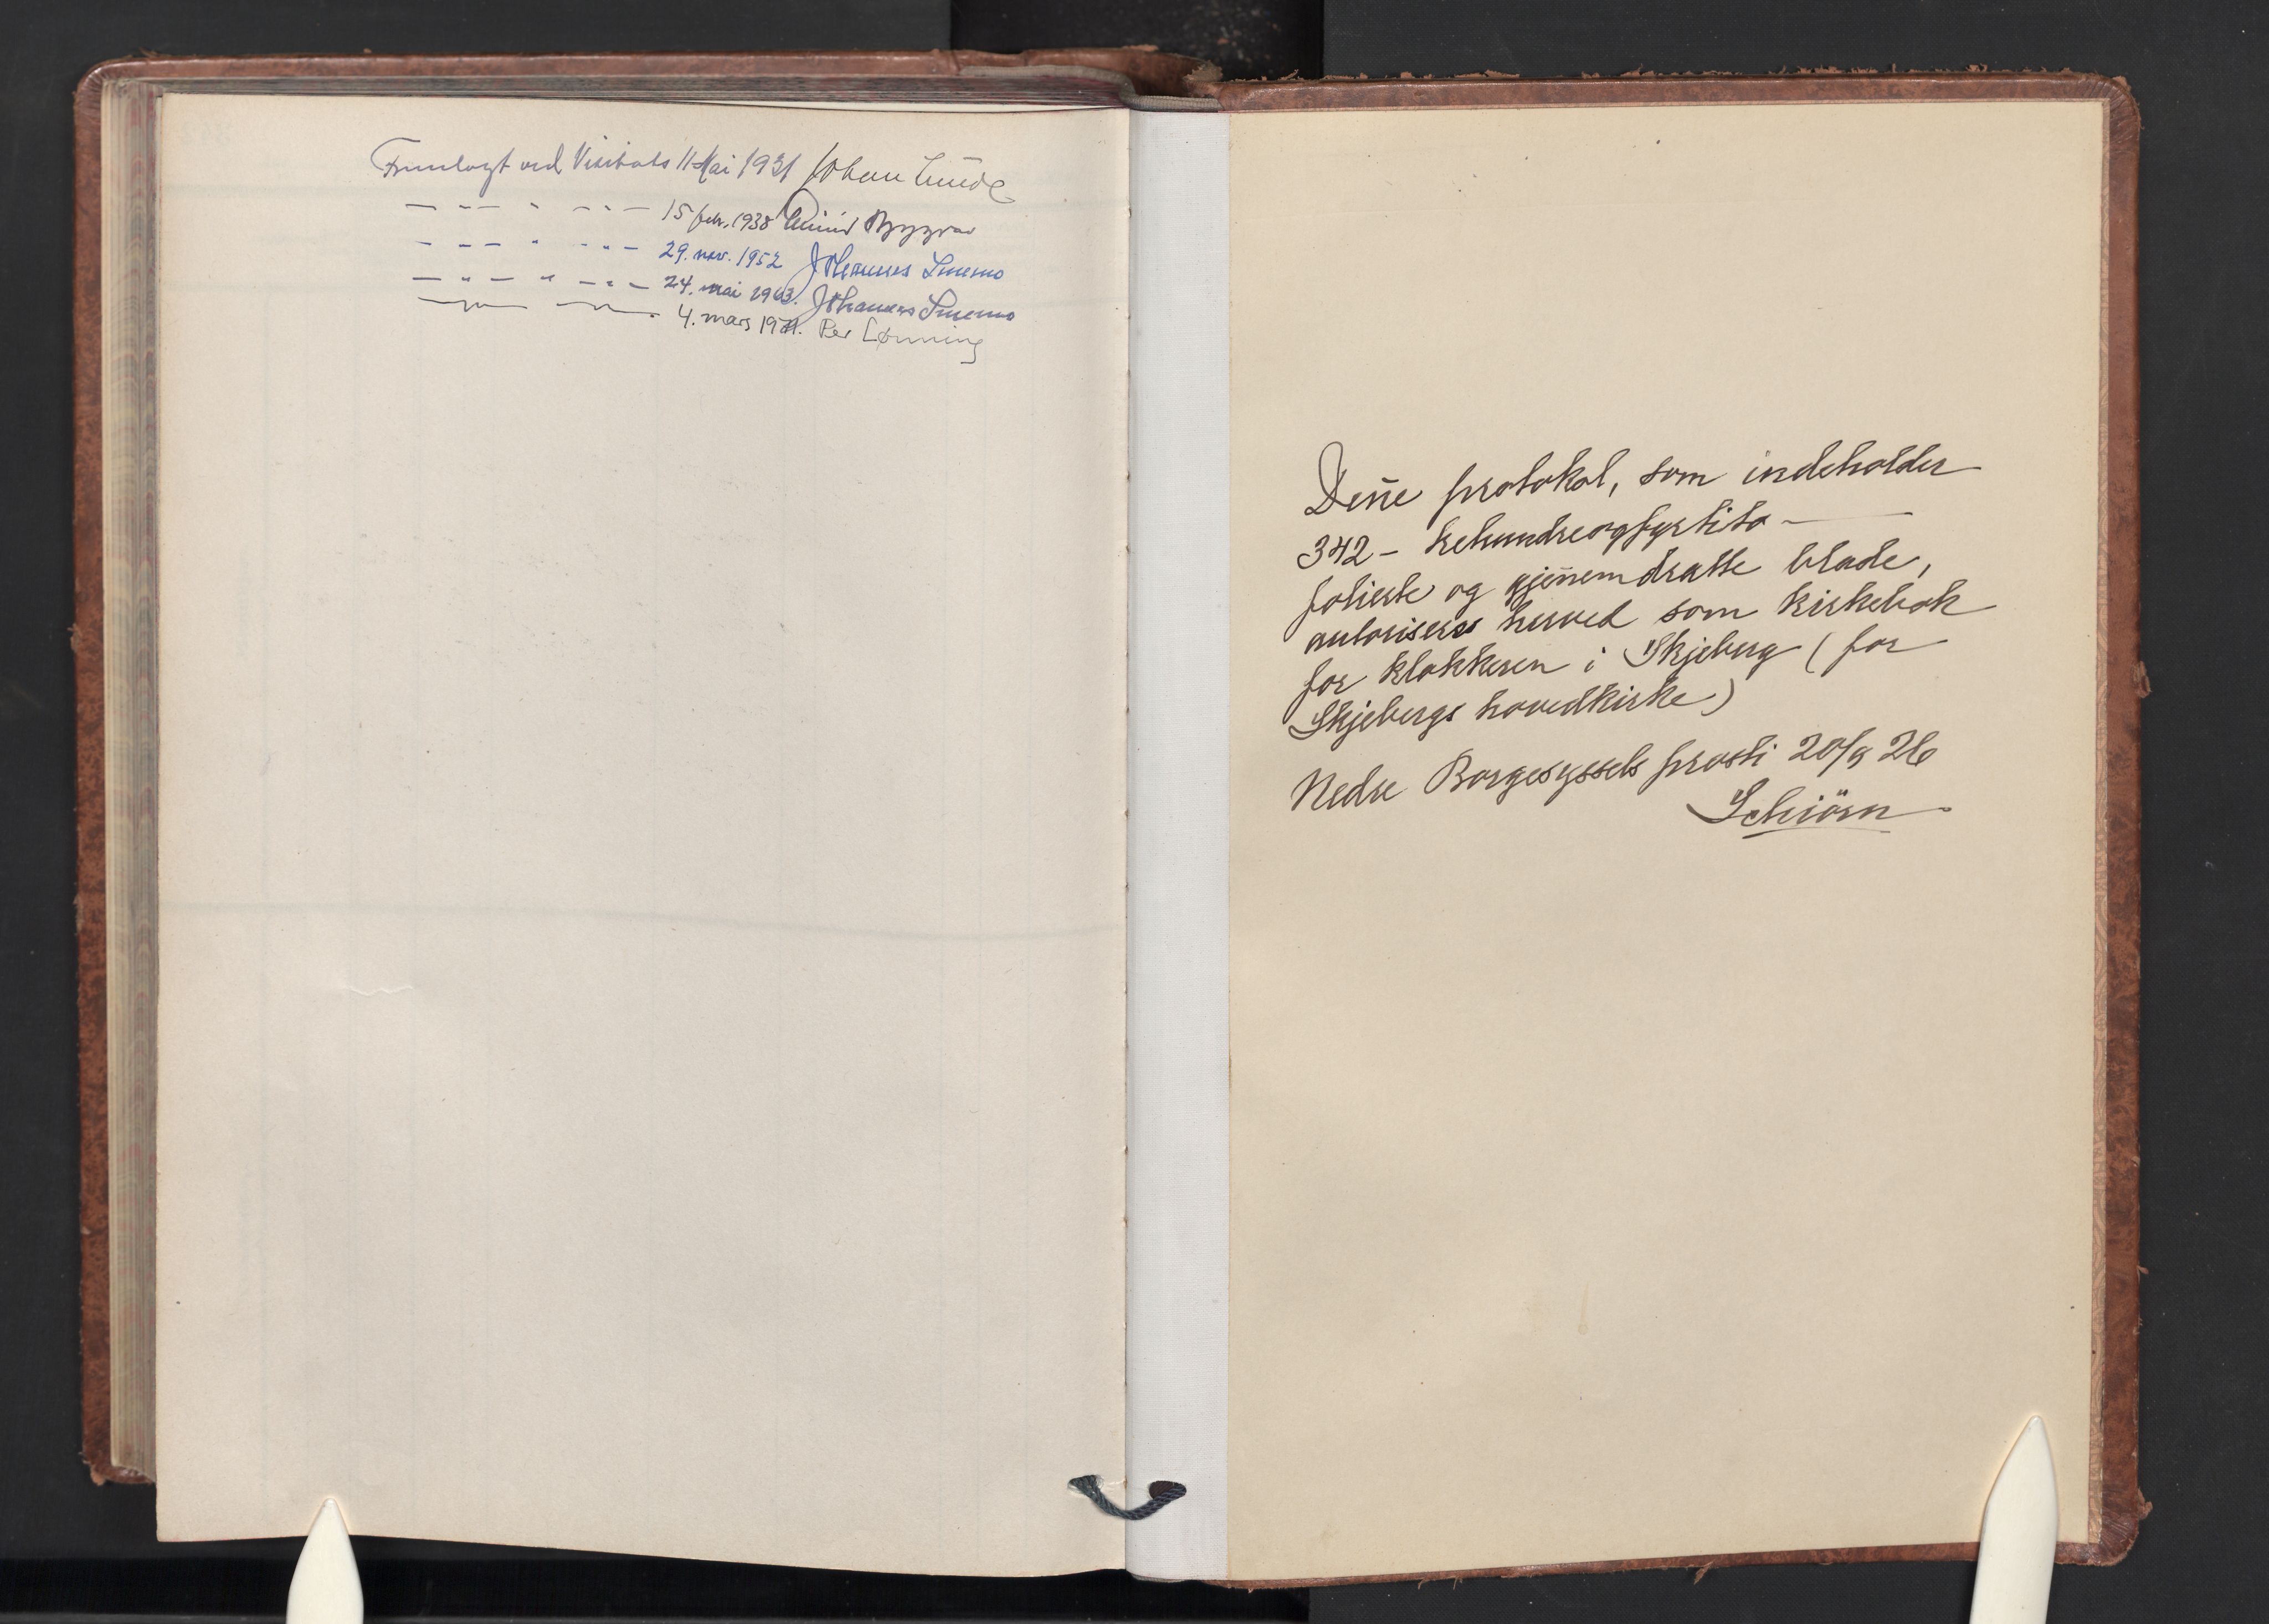 Fremlagt ved Visitats 11 Mai 1931 Johan Lunde
— " — " — " — 15 febr. 1938 Eivind Berggrav
— " — " — " — 29. nov. 1952 Johannes Smemo
— " — " — " — 24. mai 1963. Johannes Smemo
— " — — " — 4. mars 1971. Per Lønning
Denne protokol, som indeholder
342 - trehundreogfyrtito -
folierte og gjennemdratte blade,
autoriseres herved som kirkebok
for klokkeren i Skjeberg (for
Skjebergs hovedkirke)
Nedre Borgesyssels prosti 20/9 26
Schiörn